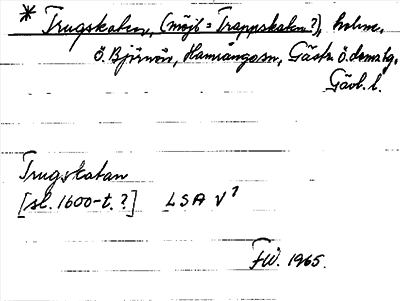 * Trugskatan, (möjl = Trappskatan?), holme,
ö. Björnön, Hamrångesn, Gästr. ö. domsag,
Gävl. l.
Trugskatan
[sl. 1600-t. ?] LSA V?
FW. 1965.